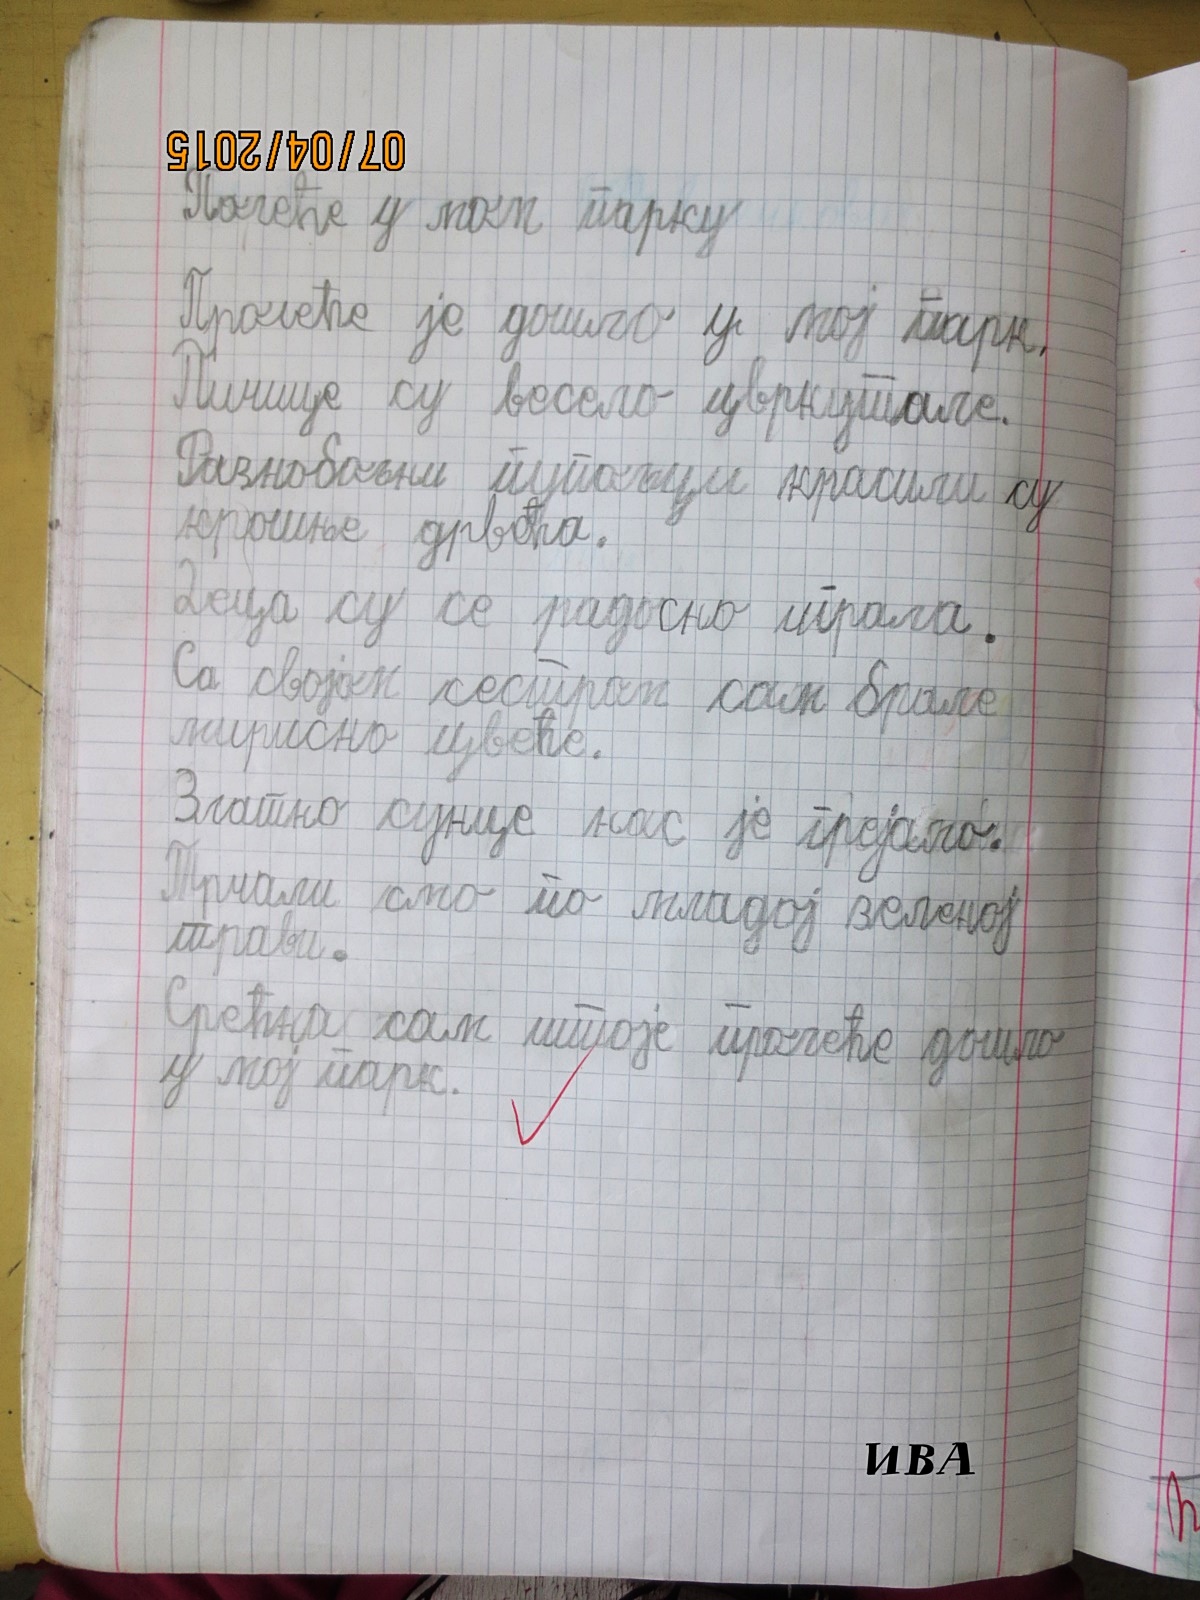 07/04/2015
Полеће у мом парку
Пролеће је дошло у мој парк.
Пичице су весело цвркутале.
Разнобојни пупољци красили су
крошње дрвећа.
Деца су се радосно играла.
Са својом сестром сам брале
мирисно цвеће.
Златно сунце нас је грејало.
Трчали смо по младој зеленој
трави.
Срећна сам штоје пролеће дошло
у мој парк.
ИВА